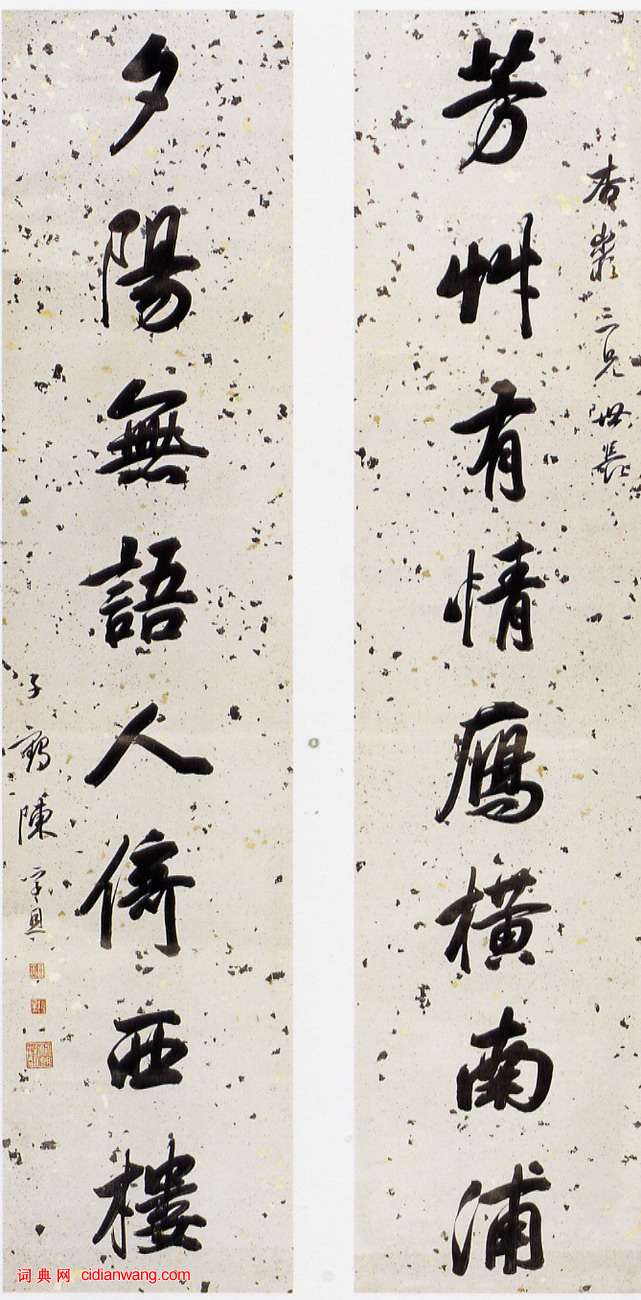 杏叢三兄世長
芳艸有情鴈橫南浦
夕陽無語人倚西樓
子鶴陳孚恩
词典网 cidianwang.com